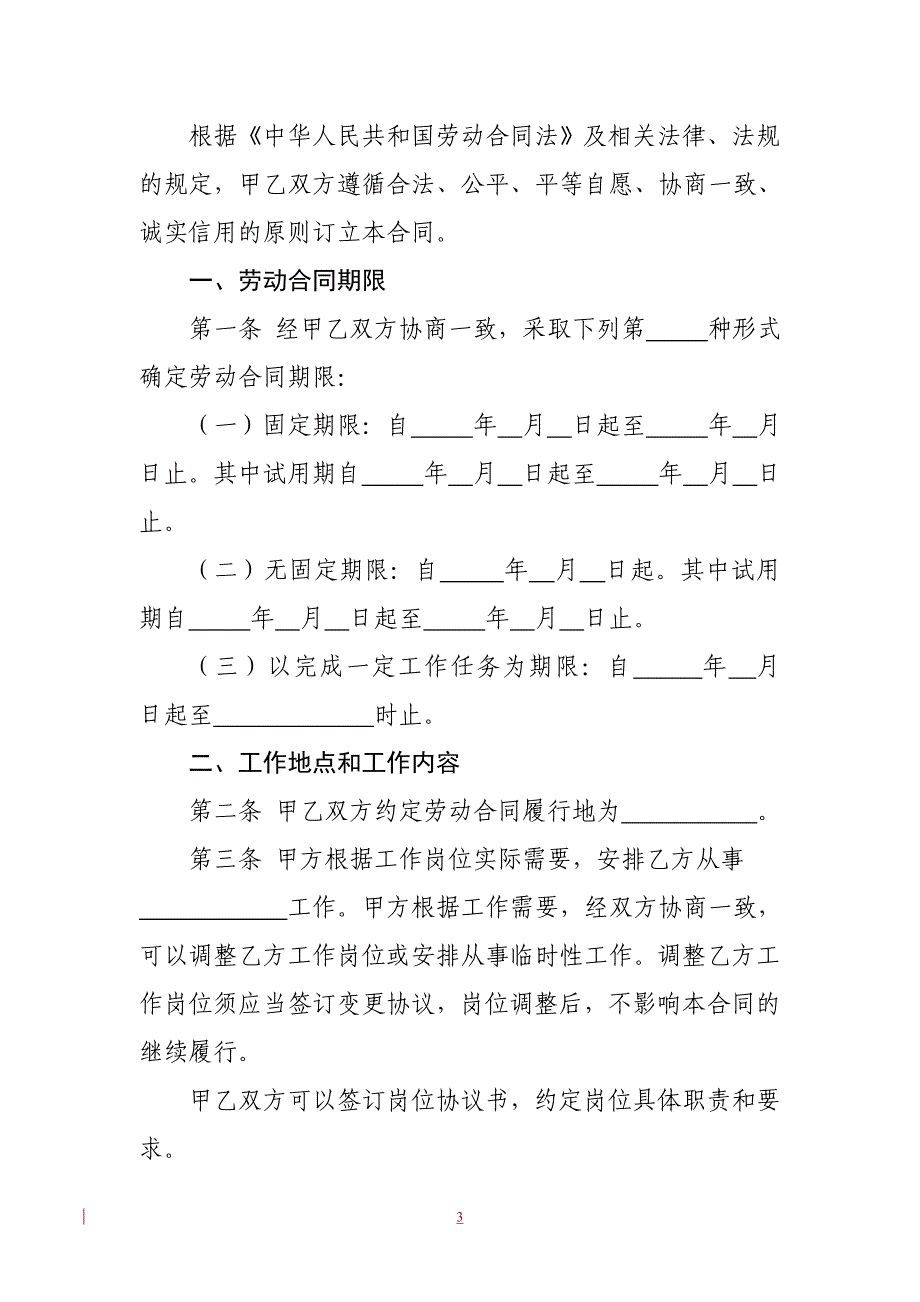 根据《中华人民共和国劳动合同法》及相关法律、法规
的规定，甲乙双方遵循合法、公平、平等自愿、协商一致、
诚实信用的原则订立本合同。
一、劳动合同期限
第一条 经甲乙双方协商一致，采取下列第_____种形式
确定劳动合同期限：
（一）固定期限：自_____年__月__日起至_____年__月
日止。其中试用期自_____年__月__日起至_____年__月__日
止。
（二）无固定期限：自_____年__月__日起。其中试用
期自_____年__月__日起至_____年__月__日止。
（三）以完成一定工作任务为期限：自_____年__月
日起至_____________时止。
二、工作地点和工作内容
第二条 甲乙双方约定劳动合同履行地为___________。
第三条 甲方根据工作岗位实际需要，安排乙方从事
____________工作。甲方根据工作需要，经双方协商一致，
可以调整乙方工作岗位或安排从事临时性工作。调整乙方工
作岗位须应当签订变更协议，岗位调整后，不影响本合同的
继续履行。
甲乙双方可以签订岗位协议书，约定岗位具体职责和要
求。
3